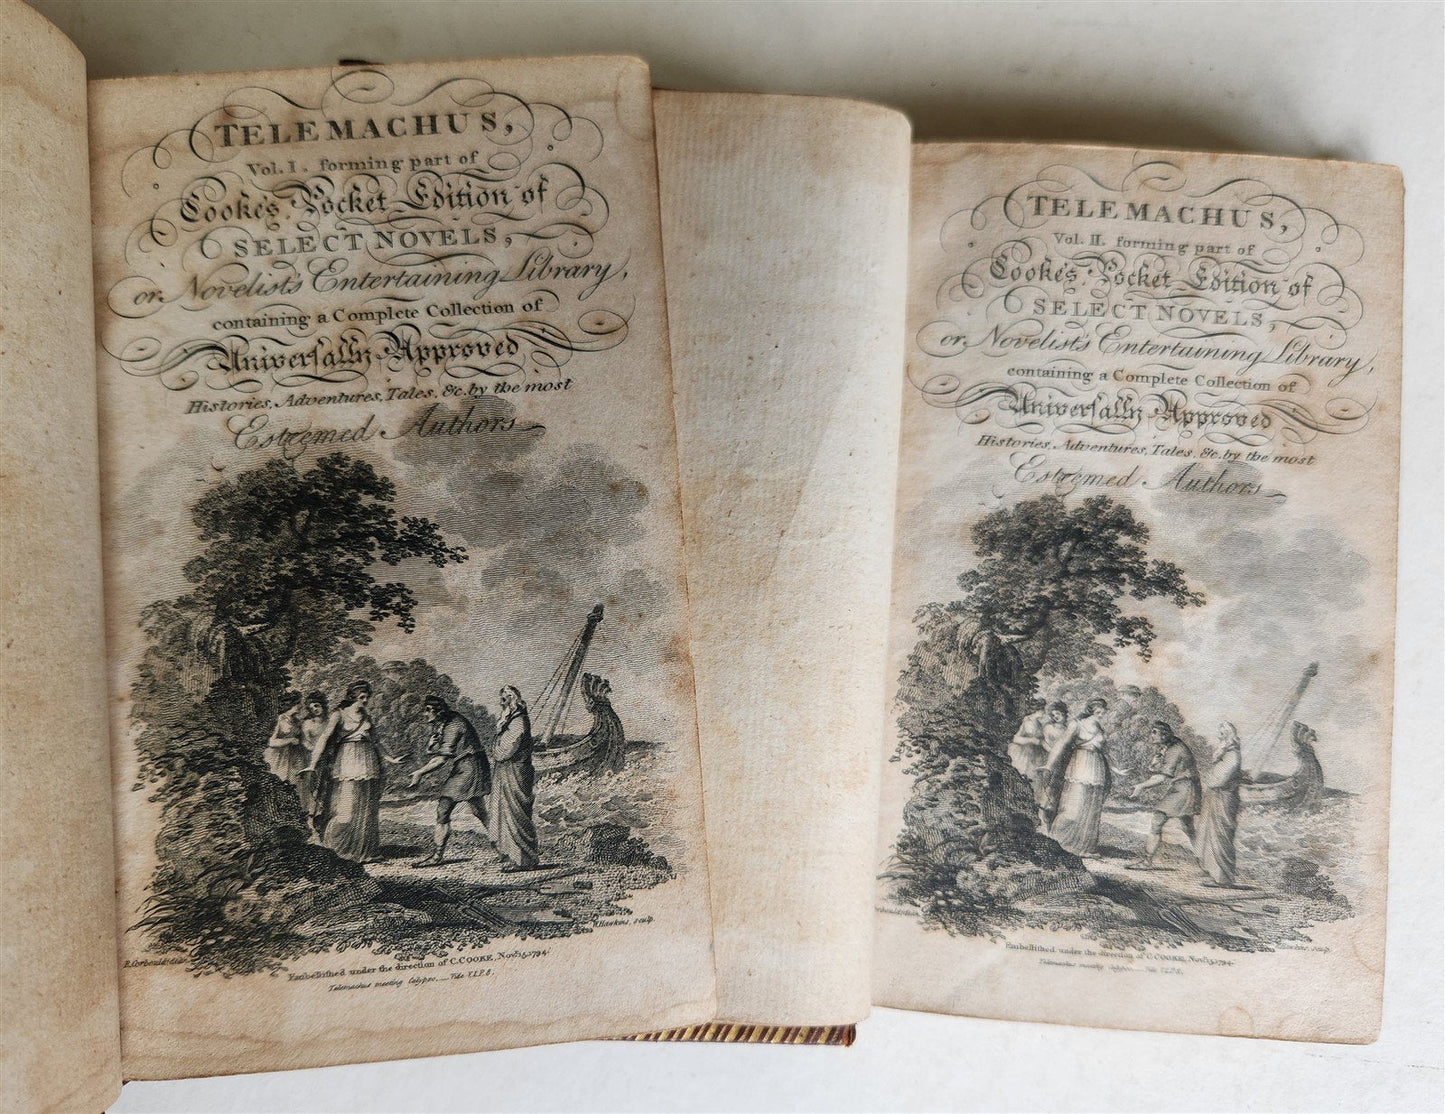 TELEMACHUS,
Vol. I. forming part of
Cooke's Pocket Edition of
SELECT NOVELS,
or Novelist's Entertaining Library,
containing a Complete Collection of
Universally Approved
Histories, Adventures, Tales, &c. by the most
Esteemed Authors
R. Corbould delin.
W. Hawkins, sculp.
Embellished under the direction of C. COOKE, Novr. 15, 1794.
Telemachus meeting Calypso. Vide V.I.P.8.
TELEMACHUS,
Vol. II. forming part of
Cooke's Pocket Edition of
SELECT NOVELS,
or Novelist's Entertaining Library,
containing a Complete Collection of
Universally Approved
Histories, Adventures, Tales, &c. by the most
Esteemed Authors
Hawkins sculp.
Embellished under the direction of C. COOKE, Novr. 15, 1794.
Telemachus meeting Calypso. Vide V.I.P.8.